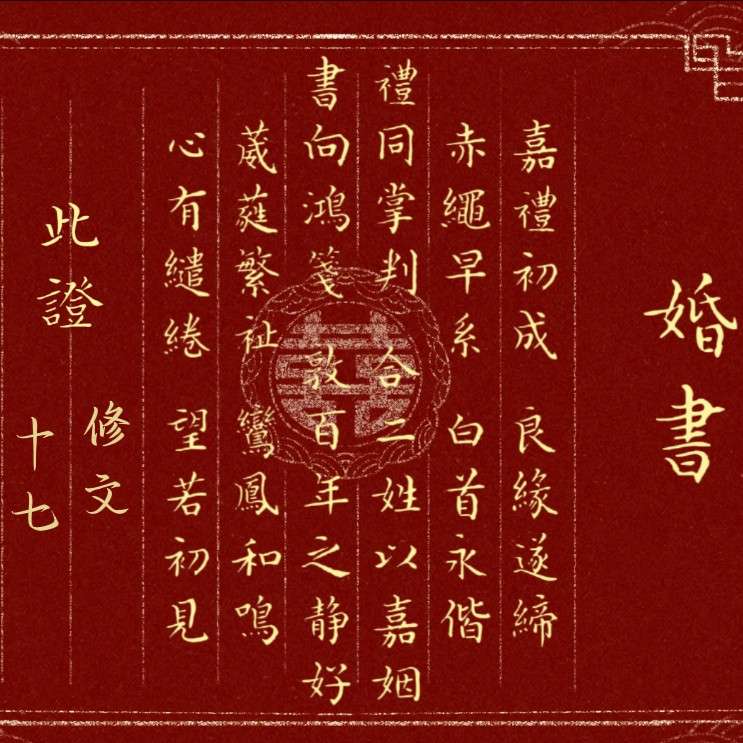 婚書
嘉禮初成 良緣遂締
赤繩早系 白首永偕
禮同掌判 合二姓以嘉姻
書向鴻箋 敦百年之静好
葳蕤繁祉 鸞鳳和鳴
心有繾綣 望若初見
此證
修文
十七